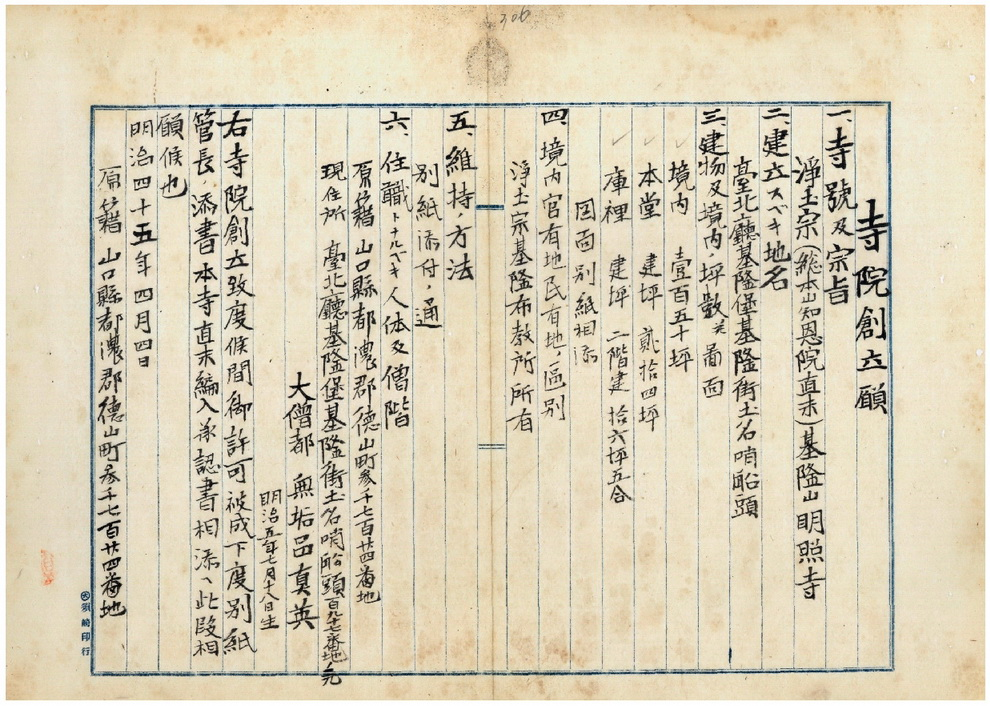 306
寺院創立願
一、寺號及宗旨
淨土宗(総本山知恩院直末)基隆山明照寺
二、建立スベキ地名
臺北廳基隆堡基隆街土名哨船頭
三、建物及境内ノ坪数并畧面
境内 壹百五十坪
本堂 建坪 貳拾四坪
庫裡 建坪 二階建 拾六坪五合
図面別紙相添
四、境内官有地民有地ノ區別
淨土宗基隆布教所所有
五、維持ノ方法
別紙添付ノ通
六、住職トナルベキ人体及僧階
原籍 山口縣都濃郡德山町参千七百廿四番地
現住所 臺北廳基隆堡基隆街土名哨船頭百九十七番地ノ元
大僧都 無垢品真英
明治五年七月十八日生
右寺院創立致度候間御許可被成下度別紙
管長ノ添書本寺直末編入承認書相添ヘ此段相
願候也
明治四十五年四月四日
原籍 山口縣都濃郡德山町参千七百廿四番地
須崎印行